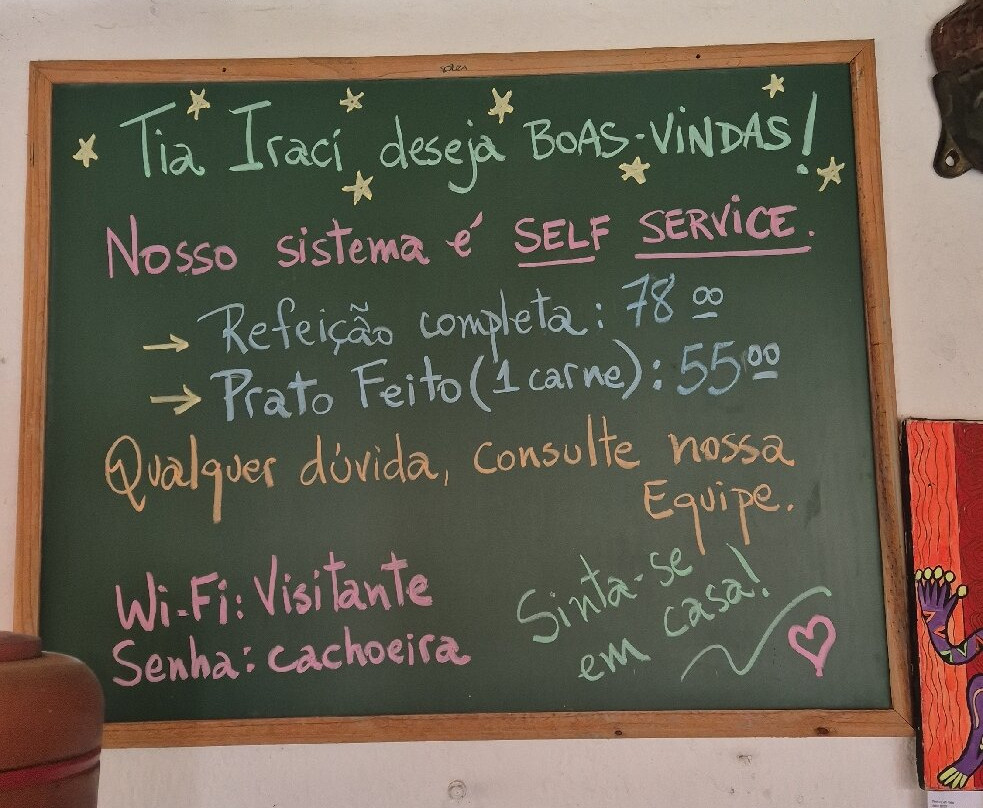 Tia Iraci deseja BOAS-VINDAS!
Nosso sistema é SELF SERVICE.
→ Refeição completa: 78 00
→ Prato Feito (1 carne): 55 00
Qualquer dúvida, consulte nossa
Equipe.
Wi-Fi: Visitante
Senha: cachoeira
Sinta-se
em casa!